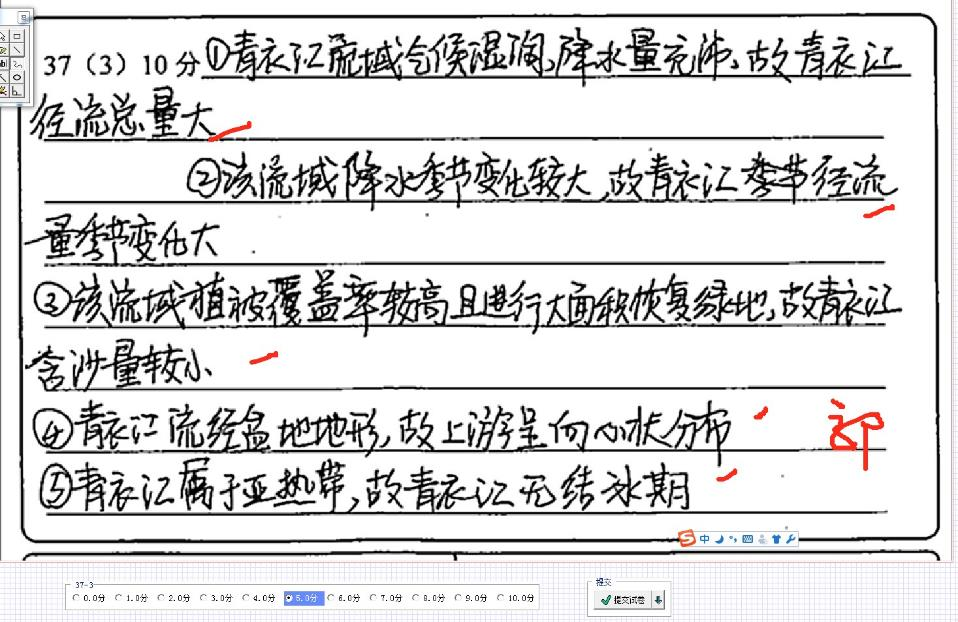 37（3）10分①青衣江流域气候湿润,降水量充沛,故青衣江
径流总量大
②该流域降水季节变化较大,故青衣江季节径流
量季节变化大
③该流域植被覆盖率较高且进行大面积恢复绿地,故青衣江
含沙量较小
④青衣江流经盆地地形,故上游呈向心状分布
⑤青衣江属于亚热带,故青衣江无结冰期
中
37-3
0.0分 1.0分 2.0分 3.0分 4.0分 5.0分 6.0分 7.0分 8.0分 9.0分 10.0分
提交
提交试卷